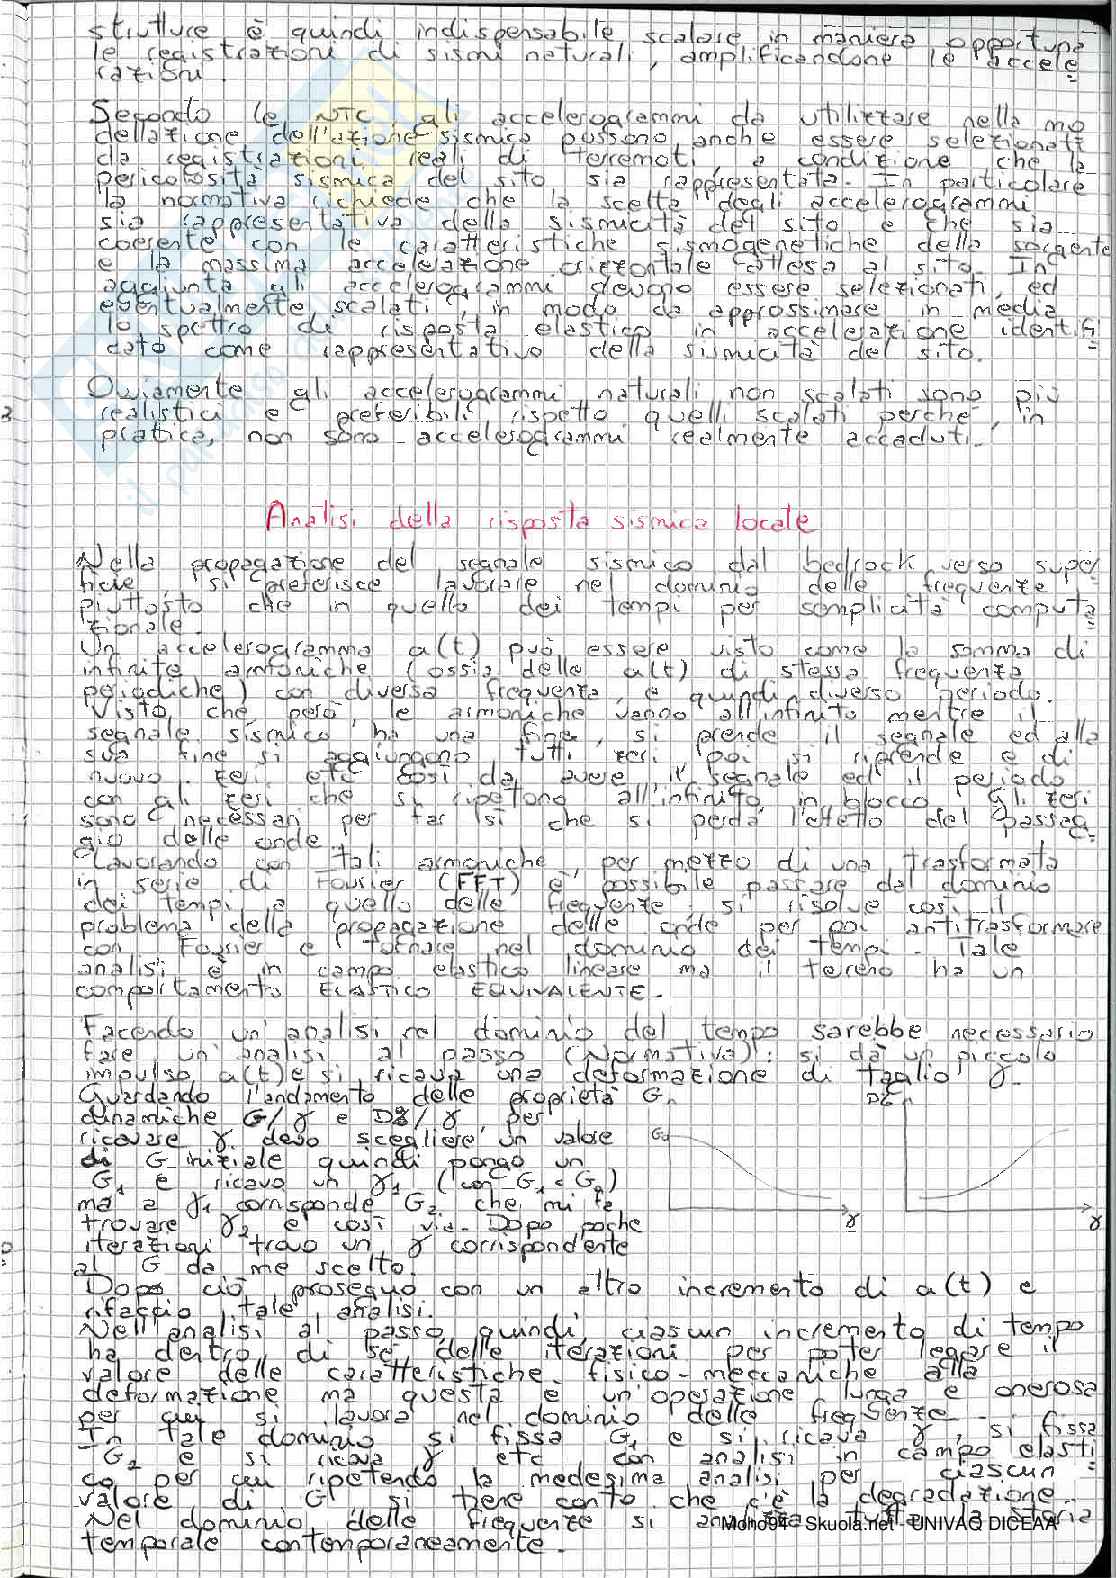 strutture è quindi indispensabile scalare in maniera opportuna
le registrazioni di sismi naturali, amplificandone le accele
razioni.
Secondo le NTC gli accelerogrammi da utilizzare nella mo
dellazione dell'azione sismica possono anche essere selezionati
da registrazioni reali di terremoti, a condizione che la
pericolosità sismica del sito sia rappresentata. In particolare
la normativa richiede che la scelta degli accelerogrammi
sia rappresentativa della sismicità del sito e che sia
coerente con le caratteristiche sismogenetiche della sorgente
e la massima accelerazione orizzontale attesa al sito. In
aggiunta gli accelerogrammi devono essere selezionati, ed
eventualmente scalati, in modo da approssimare in media
lo spettro di risposta elastico in accelerazione identifi
cato come rappresentativo della sismicità del sito.
Ovviamente gli accelerogrammi naturali non scalati sono più
realistici e preferibili rispetto quelli scalati perchè, in
pratica, non sono accelerogrammi realmente accaduti.
Analisi della risposta sismica locale
Nella propagazione del segnale sismico dal bedrock verso super
ficie, si preferisce lavorare nel dominio delle frequenze
piuttosto che in quello dei tempi per semplicità computa
zionale.
Un accelerogramma a(t) può essere visto come la somma di
infinite armoniche (ossia delle a(t) di stessa frequenza
periodiche) con diversa frequenza, e quindi diverso periodo.
Visto che, però, le armoniche vanno all'infinito mentre il
segnale sismico ha una fine, si prende il segnale ed alla
sua fine si aggiungono tutti zeri poi si riprende e di
nuovo zeri etc così da avere il segnale ed il periodo
con gli zeri che si ripetono all'infinito in blocco. Gli zeri
sono necessari per far sì che si perda l'effetto del passag
gio delle onde.
Lavorando con tali armoniche, per mezzo di una trasformata
in serie di Fourier (FFT) è possibile passare dal dominio
dei tempi a quello delle frequenze: si risolve così il
problema della propagazione delle onde per poi antitrasformare
con Fourier e tornare nel dominio dei tempi. Tale
analisi è in campo elastico lineare ma il terreno ha un
comportamento ELASTICO EQUIVALENTE.
Facendo un'analisi nel dominio del tempo sarebbe necessario
fare un'analisi al passo (Normativa): si dà un piccolo
impulso a(t) e si ricava una deformazione di taglio γ.
Guardando l'andamento delle proprietà
dinamiche G/γ e D%/γ, per
ricavare γ devo scegliere un valore
di G iniziale quindi pongo un
G1 e ricavo un γ1 (con G1 < G0)
ma a γ1 corrisponde G2 che mi fa
trovare γ2 e così via. Dopo poche
iterazioni trovo un γ corrispondente
al G da me scelto.
G
G0
γ
γ
Dopo ciò proseguo con un altro incremento di a(t) e
rifaccio tale analisi.
Nell'analisi al passo, quindi, ciascun incremento di tempo
ha dentro di sè delle iterazioni per poter legare il
valore delle caratteristiche fisico-meccaniche alla
deformazione ma questa è un'operazione lunga e onerosa
per cui si lavora nel dominio delle frequenze.
In tale dominio si fissa G1 e si ricava γ, si fissa
G2 e si ricava γ etc con analisi in campo elasti
co per cui ripetendo la medesima analisi per ciascun
valore di G si tiene conto che c'è la degradazione.
Nel dominio delle frequenze si analizza tutta la storia
temporale contemporaneamente.
Moho94 - Skuola.net - UNIVAQ DICEAA